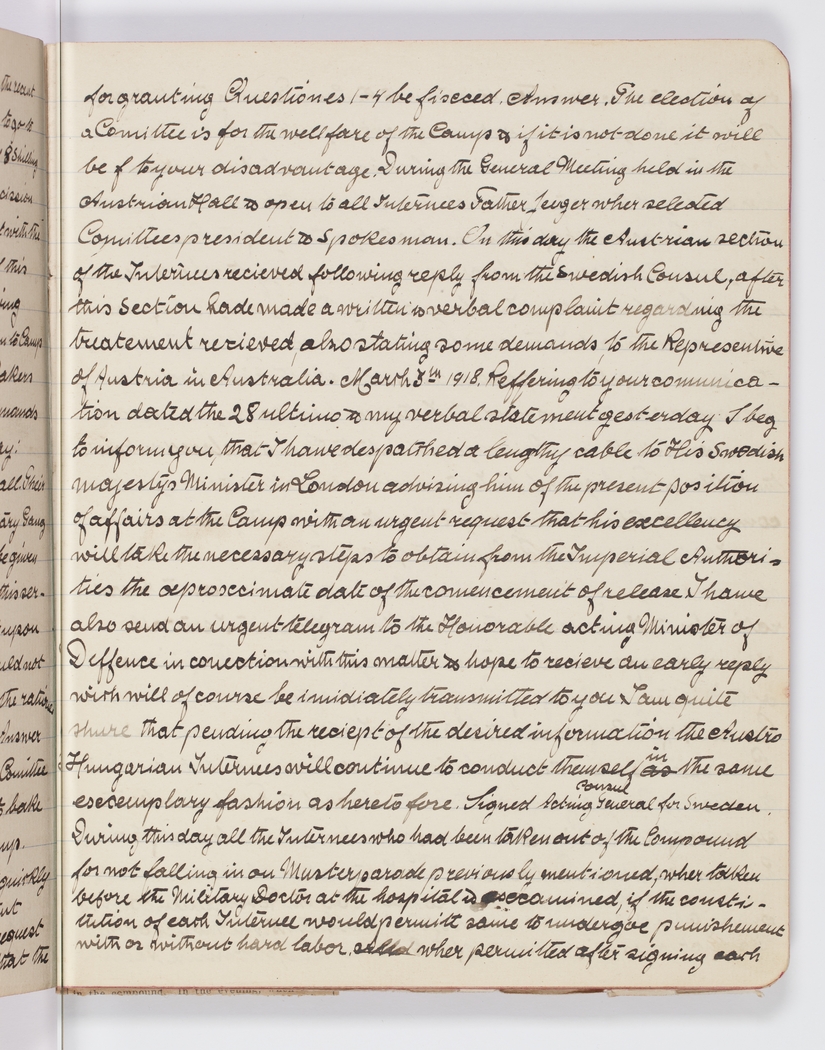 the recent
to go to
18 Shilling
cission
t with the
f this
ing
n to Camp
akers
mands
ay:
all their
ary Gang
be given
this ser-
upon
uld not
the rations
Answer
Comittee
bake
up.
quickly
ut
request
that the
for granting Questiones 1-4 be fiscced. Answer. The election of
a Comittee is for the wellfare of the Camp & if it is not done it will
be f to your disadvantage. During the General Meeting held in the
Austrian Hall & open to all Internees Father wher selected
Comittees president & Spokesman. On this day the Austrian section
of the Internees recieved following reply from the Swedish Consul, after
this Section hade made a written & verbal complaint regarding the
treatement recieved, also stating some demands to the Representive
of Austria in Australia. March 5th 1918. Reffering to your communica-
tion dated the 28 ultimo & my verbal statement yesterday I beg
to inform you, that I hawe despatched a lengthy cable to His Swedish
majesty's Minister in London advising him of the present position
of affairs at the Camp with an urgent request that his excellency
will take the necessary steps to obtain from the Imperial Authori-
ties the aproscimate date of the comencement of release I hawe
also send an urgent telegram to the Honorable acting Minister of
Deffence in conection with this matter & hope to recieve an early reply
wich will of course be imidiately transmitted to you & I am quite
shure that pending the reciept of the desired information the Austro
Hungarian Internees will continue to conduct themself as in the same
esccemplary fashion as heretofore. Signed Acting Consul General for Sweden.
During this day all the Internees who had been taken out of the Compound
for not falling in on Musterparade previously mentioned, wher taken
before the Military Doctor at the hospital & esccamined, if the consti-
tution of each Internee would permitt same to undergoe punishement
with or without hard labor, wher permitted after signing each
in the compound. In the evening,